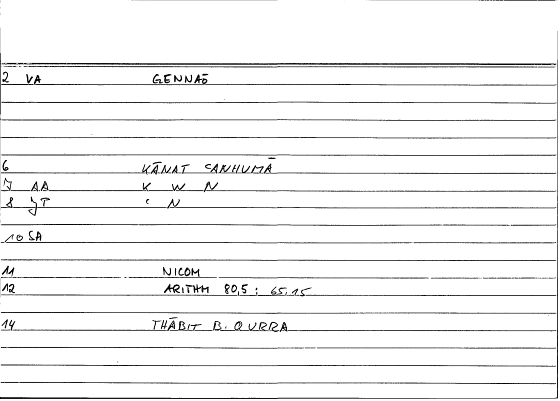 2 VA GENNAŌ
6 KĀNAT ʿANHUMĀ
7 AA K W N
8 JT ʿ N
10 SA
11 NICOM
12 ARITHM 80,5 : 65.15
14 THĀBIT B. QURRA